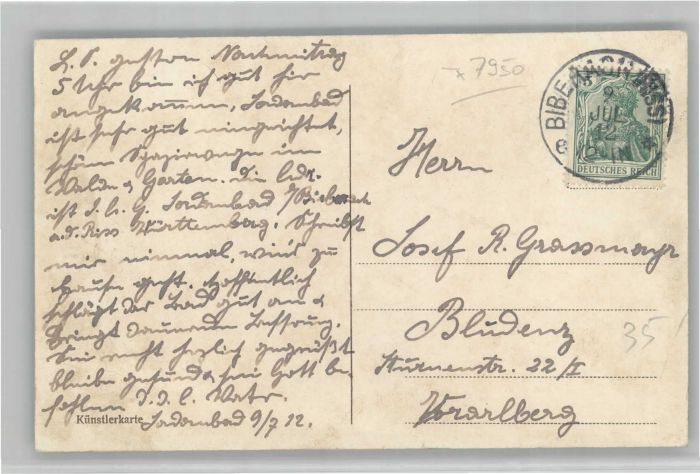 L. P. gestern Nachmittag
5 Uhr bin ich gut hier
angekommen, Jordanbad
ist sehr gut eingerichtet,
schöne Spazierwege im
Walde & Garten. Die Adr.
ist J. R. G. Jordanbad b/Biberach
a.d. Riss Württemberg. Schreibst
mir einmal, wie's zu
Hause geht. Hoffentlich
schlägt das Bad gut an &
bringt dauernde Besserung.
Sei recht herzlich gegrüßt
bleibe gesund & sei Gott be-
fohlen D. d. l. Vater.
Jordanbad 9/7 12.
Künstlerkarte
* 7950
BIBERACH (RISS)
9
JUL
12
DEUTSCHES REICH
Herrn
Josef R. Grassmayr
Bludenz
Sturnenstr. 22/I
Vorarlberg
35